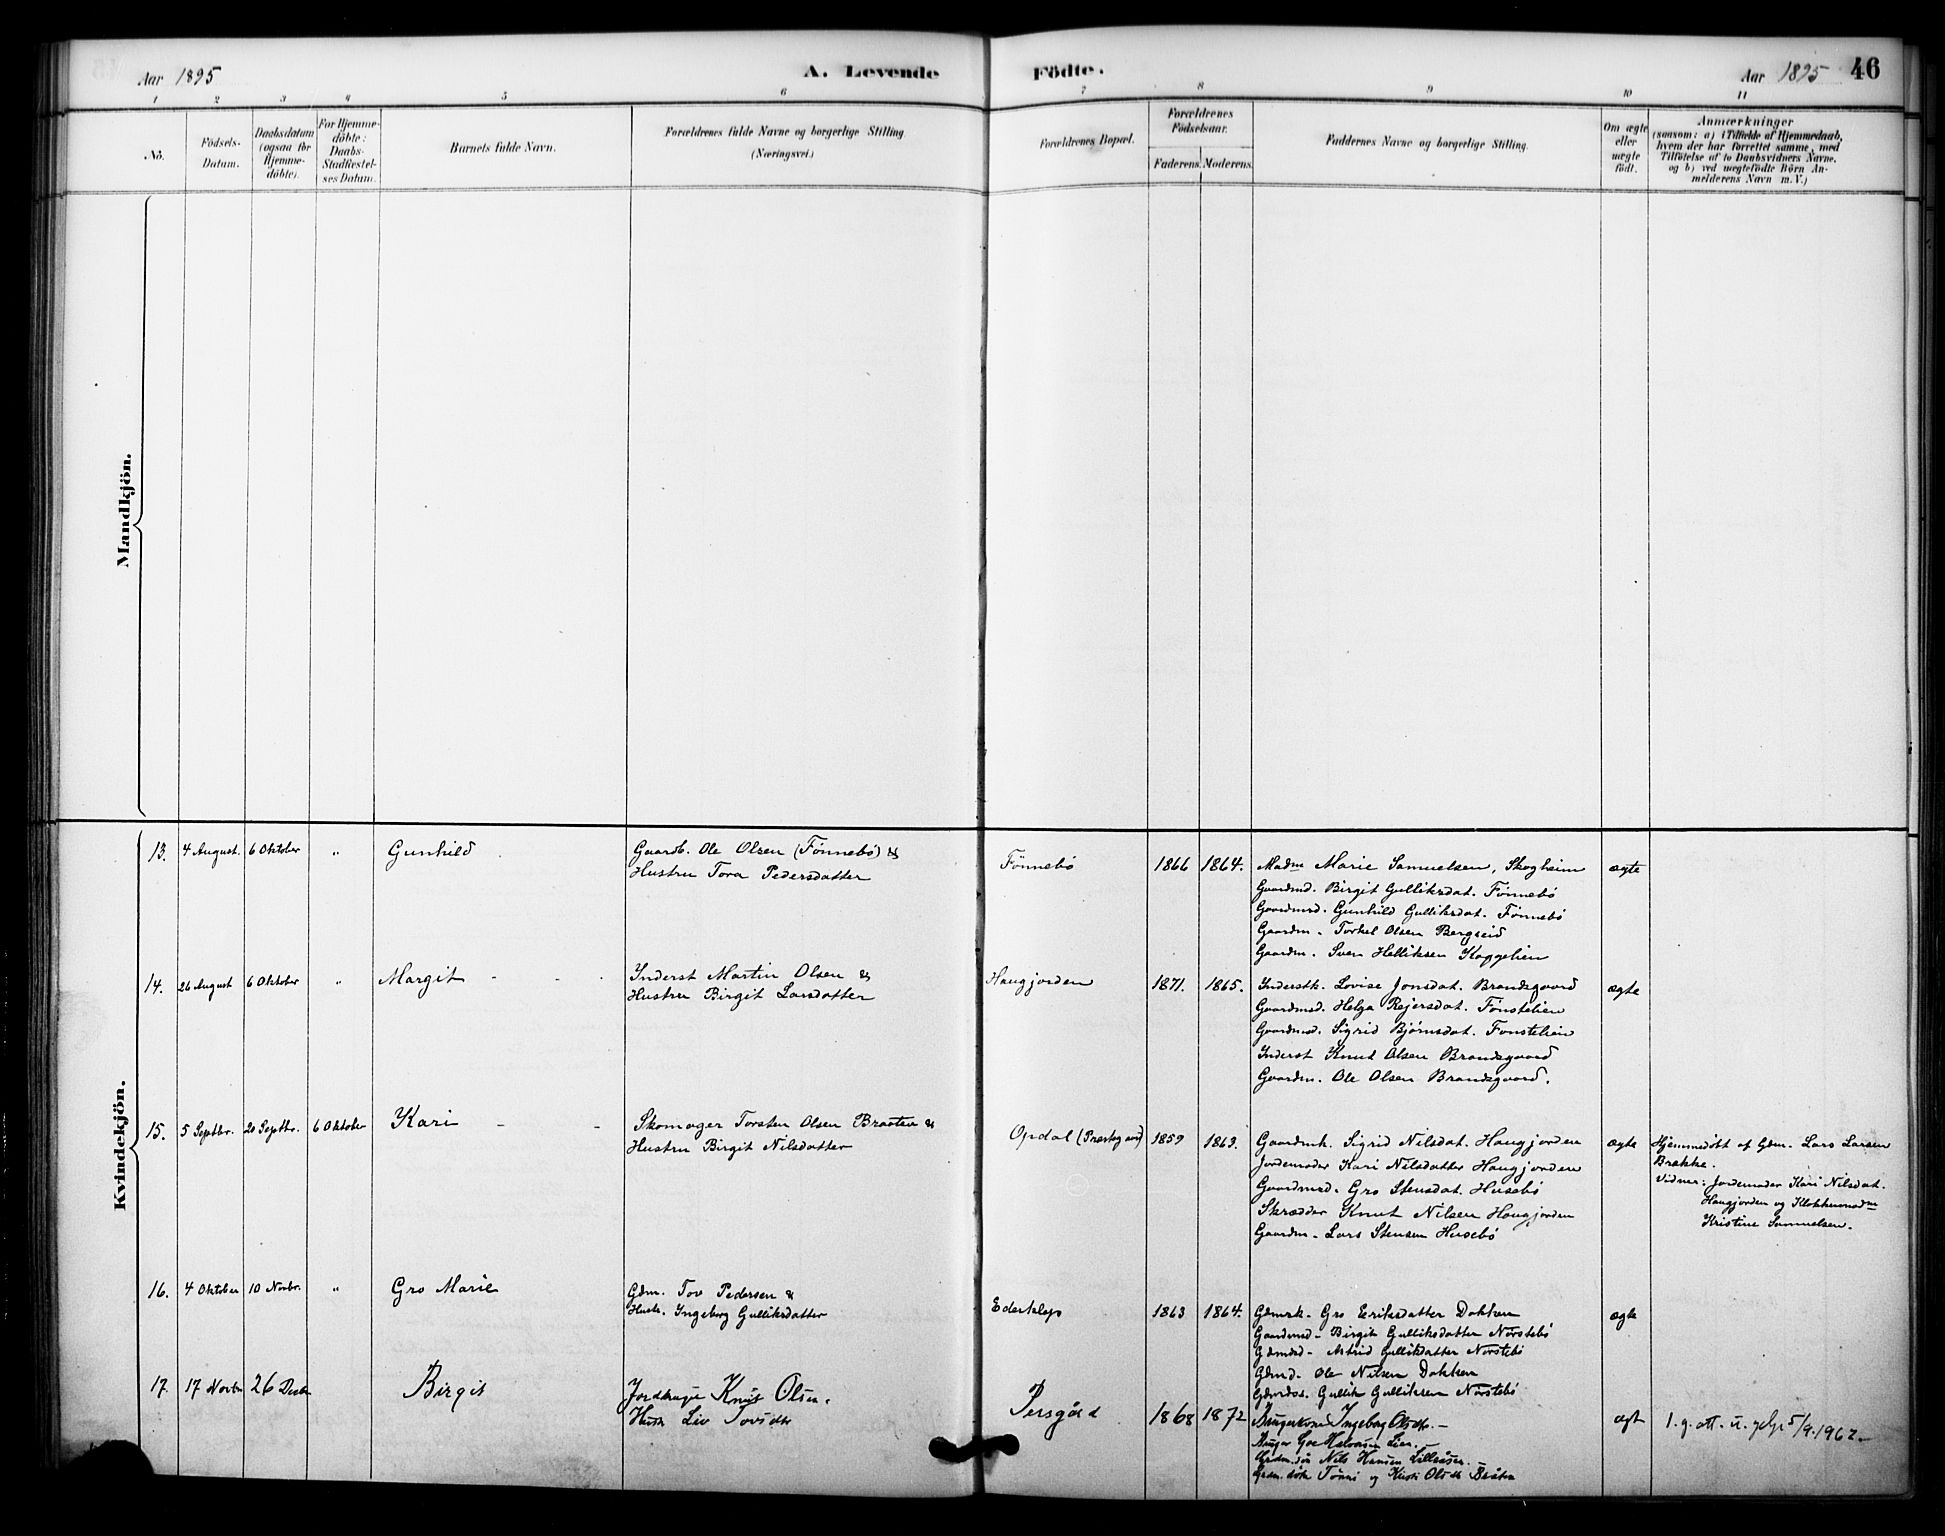 Aar 1895
A. Levende
Födte.
Aar 1895
46
1 2 3 4 5 6 7 8 9 10 11
No.
Födsels-
Datum.
Daabsdatum
(ogsaa for
Hjemme-
döbte).
For Hjemme-
döbte:
Daabs-
Stadfestel-
ses Datum.
Barnets fulde Navn.
Forældrenes fulde Navne og borgerlige Stilling.
(Næringsvei.)
Forældrenes Bopæl.
Forældrenes
Födselsaar.
Faderens. Moderens.
Faddernes Navne og borgerlige Stilling.
Om ægte
eller
uægte
födt.
Anmærkninger
(saasom: a) i Tilfælde af Hjemmedaab,
hvem der har forrettet samme, med
Tilföielse af to Daabsvidners Navne.
og b) ved uægtefödte Börn An-
melderens Navn m. V.)
Mandkjön.
Kvindekjön.
13. 4 August. 6 Oktober " Gunhild
Gaardb. Ole Olsen (Fönnebö) &
Hustru Tora Pedersdatter
Fönnebö 1866 1864.
Madm Marie Samuelsen, Skogheim
Gaardmd. Birgit Gulliksdat. Fönnebö
Gaardmsd. Gunhild Gulliksdat. Fönnebö
Gaardm. Torkel Olsen Bergseid
Gaardm. Sven Helliksen Koppelien
ægte
14. 26 August 6 Oktober " Margit
Inderst Martin Olsen &
Hustru Birgit Larsdatter
Haugjorden 1871. 1865.
Inderstk. Lovise Jonsdat. Brandsgaard
Gaardmsd. Helga Rejersdat. Fönstelien
Gaardmsd. Sigrid Björnsdat. Fönstelien
Inderst Knut Olsen Brandsgaard
Gaardm. Ole Olsen Brandsgaard.
ægte
15. 5 Septbr. 20 Septbr. 6 Oktober Kari
Skomager Torsten Olsen Braaten &
Hustru Birgit Nilsdatter
Opdal (Præstegaard) 1859 1863.
Gaardmk. Sigrid Nilsdat. Haugjorden
Jordemoder Kari Nilsdatter Haugjorden
Gaardmsd. Gro Stensdat. Husebö
Skrædder Knut Nilsen Haugjorden
Gaardm. Lars Stensen Husebö
ægte
Hjemmedöbt af Gdm. Lars Larsen
Brække.
Vidner: Jordemoder Kari Nilsdat.
Haugjorden og Klokkermadm
Kristine Samuelsen.
16. 4 Oktober 10 Novbr. " Gro Marie
Gdm. Tov Pedersen &
Hustr. Ingeborg Gulliksdatter
Ederklep 1863 1864.
Gdmk. Gro Eriksdatter Dokken
Gaardmsd. Birgit Gulliksdatter Norstebö
Gdmsd. Astrid Gulliksdatter Norstebö
Gdmd. Ole Nilsen Dokken
Gullik Gulliksen Norstebö
ægte
17. 17 Novbr 26 Decbr Birgit
Jordbruger Knut Olsen.
Hustr Liv Tovsdtr
Persgård 1868 1872
Brugerkone Ingeborg Olsdtr.
Halvorsen Lien.
Nils Hansen Lilleåsen.
Tönni og Kirsti Olsdtr Bråten
ægt
1. g. att. u. 5/9. 1962.